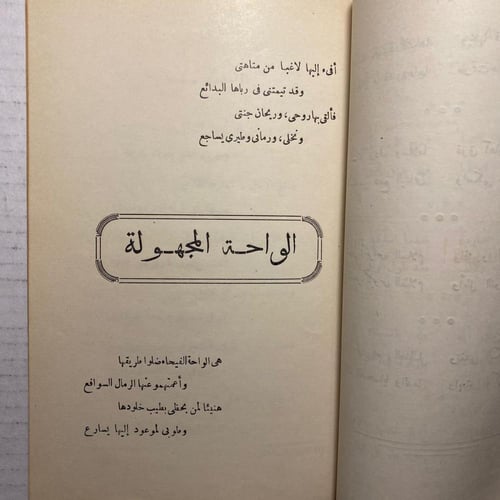 أفىء إليها لاغبا من متاهتى
وقد تيمتنى فى رباها البدائع
فألقى بها روحى، وريحان جنتى
ونخلى، ورمانى وطيرى يساجع
الواحة المجهولة
هى الواحة الفيحاء ضلوا طريقها
وأعمتهمو عنها الرمال السوافع
هنيئا لمن يحظى بطيب خلودها
وطوبى لموعود إليها يسارع